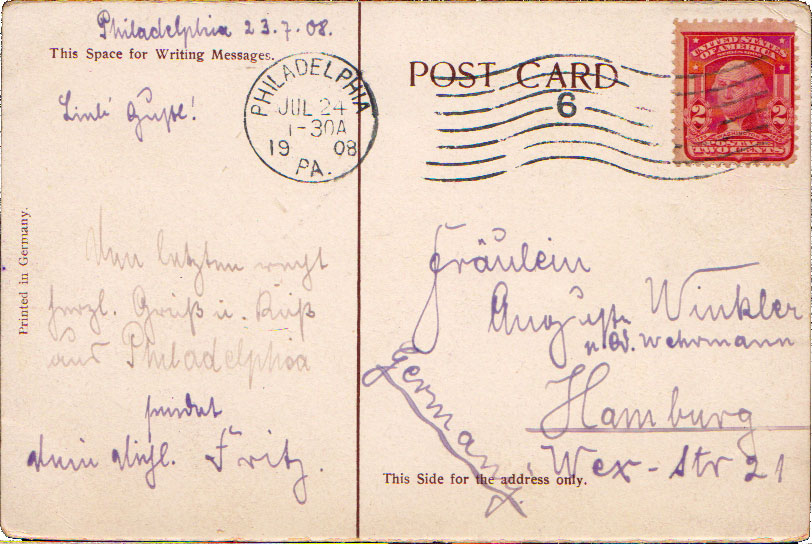 Philadelphia 23.7.08.
This Space for Writing Messages.
Liebe Gustl!
Den letzten recht
herzl. Gruß u. Kuß
aus Philadelphia
sendet
dein dichl. Fritz.
Printed in Germany.
PHILADELPHIA
JUL 24
1-30A
1908
PA.
POST CARD
6
UNITED STATES
OF AMERICA
2 2
POSTAGE
TWO CENTS
Fräulein
Auguste Winkler
Wehrmann
Hamburg
Wex-Str 21
Germany.
This Side for the address only.